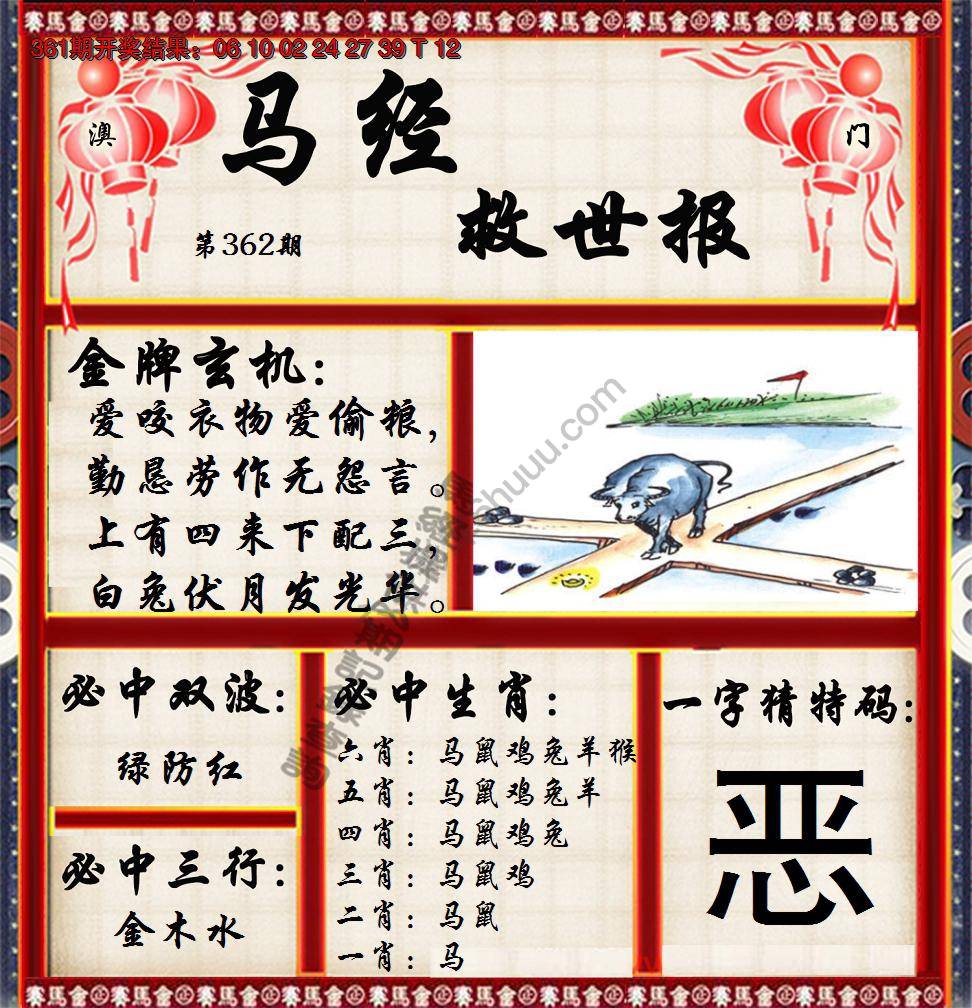 361期开奖结果：06 10 02 24 27 39 T 12
澳
门
马经
救世报
第362期
金牌玄机：
爱咬衣物爱偷粮，
勤恳劳作无怨言。
上有四来下配三，
白兔伏月发光华。
必中双波：
绿防红
必中三行：
金木水
必中生肖：
六肖：马鼠鸡兔羊猴
五肖：马鼠鸡兔羊
四肖：马鼠鸡兔
三肖：马鼠鸡
二肖：马鼠
一肖：马
一字猜特码：
恶